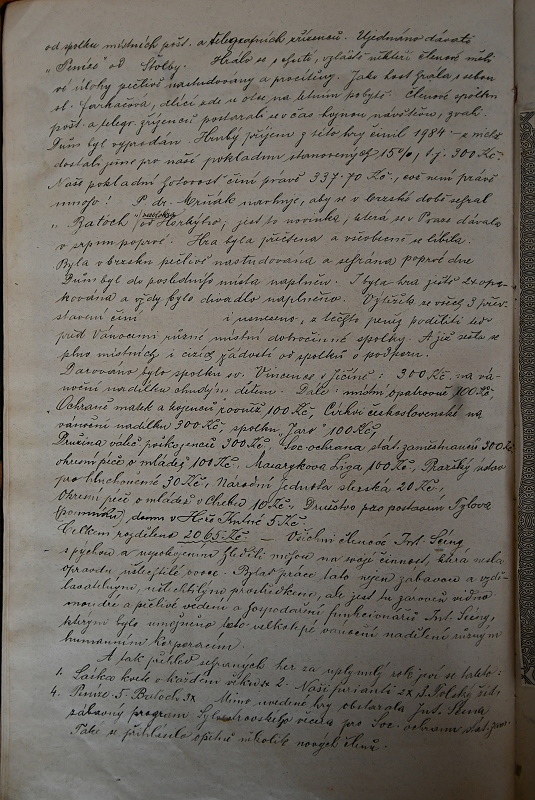 od spolku místních pošt. a telegrafních zřízenců. Ujednáno dávati
„Peníze" od Štolby. Hrálo se s chutí, vzláště někteří členové měli
své úlohy pečlivě nastudovány a procítěny. Jako host hrála s sebou
sl. Farkačová, dlící zde u otce na letním pobytě. Členové spolku
pošt. a telegr. zřízenců postarali se o čas hojnou návštěvu, zvali.
Dům byl vyprodán. Hrubý příjem z této hry činil 1984 – a měli
dostali jsme pro naši pokladnu stanovených 15%, t. j. 300 Kč.
Naše pokladní hotovost činí právě 337·70 Kč, což není právě
mnoho! P. dr. Mrňák navrhuje, aby se v brzské době sehrál
„Batoch" od Horkého; jest to novinka, která se v Praze dávala
v srpnu poprvé. Hra byla přečtena a všeobecně se líbila.
Byla v brzsku pečlivě nastudována a sehrána poprvé dne
Dům byl do posledního místa naplněn. I byla hra ještě 2x opa-
kována a vždy bylo divadlo naplněno. Výtěžek ze všech 3 před-
stavení činí i usneseno, z těchto peněz poděliti
před Vánocemi různé místní dobročinné spolky. A již sešlo se
plno místních i cizích žádostí od spolků o podporu.
Darováno bylo spolku sv. Vincence v Jičíně: 300 Kč na vá-
noční nadílku chudým dětem. Dále: místní opatrovně 100 Kč,
Ochraně matek a kojenců rovněž 100 Kč, Církvi československé na
vánoční nadílku 300 Kč, spolku „Jaro" 100 Kč,
Družina válč. poškozenců 300 Kč. Soc. ochrana stát. zaměstnanců 300 Kč
okresní péče o mládež 100 Kč, Masarykova Liga 100 Kč, Pražský ústav
pro hluchoněmé 30 Kč, Národní Jednota slezská 20 Kč,
Okresní péče o mládež v Chebu 10 Kč. Družstvo pro postavení Tylova
(pomníku) domu v Hoře Kutné 5 Kč.
Celkem rozděleno 2065 Kč. – Všichni členové Int. Scény
s pýchou a uspokojením hleděli mohou na svoji činnost, která nesla
opravdu ušlechtilé ovoce. Bylať práce tato nejen zábavou a vzdě-
lavatelným, ušlechtilým prostředkem, ale jest tu zároveň vidno
moudré a pečlivé vedení a hospodaření funkcionářů Int. Scény,
kterým bylo umožněno toto velkolepé vánoční nadělení různým
humanním korporacím.
A tak přehled sehraných her za uplynulý rok jeví se takto:
1. Láska kvete v každém věku 2. Naši furianti 2x 3. Polský žid
4. Peníze 5. Batoch 3x Mimo uvedené hry obstarala Int. Scéna
zábavný program Sylvestrovského večera pro Soc. ochranu stát. zam.
Také se přihlásilo opětně několik nových členů.